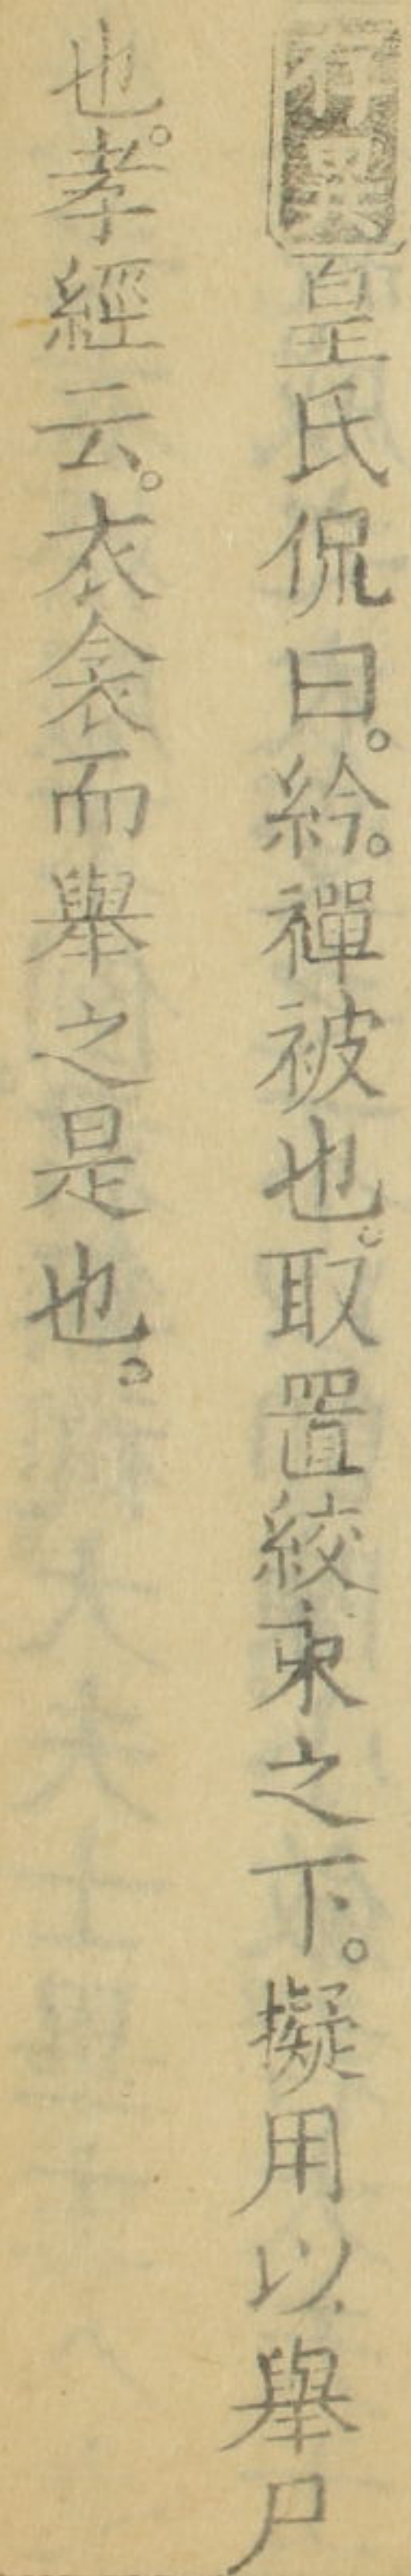 皇氏侃曰。紟。襌被也。取置絞束之下。擬用以舉尸
也。孝經云。衣衾而舉之是也。